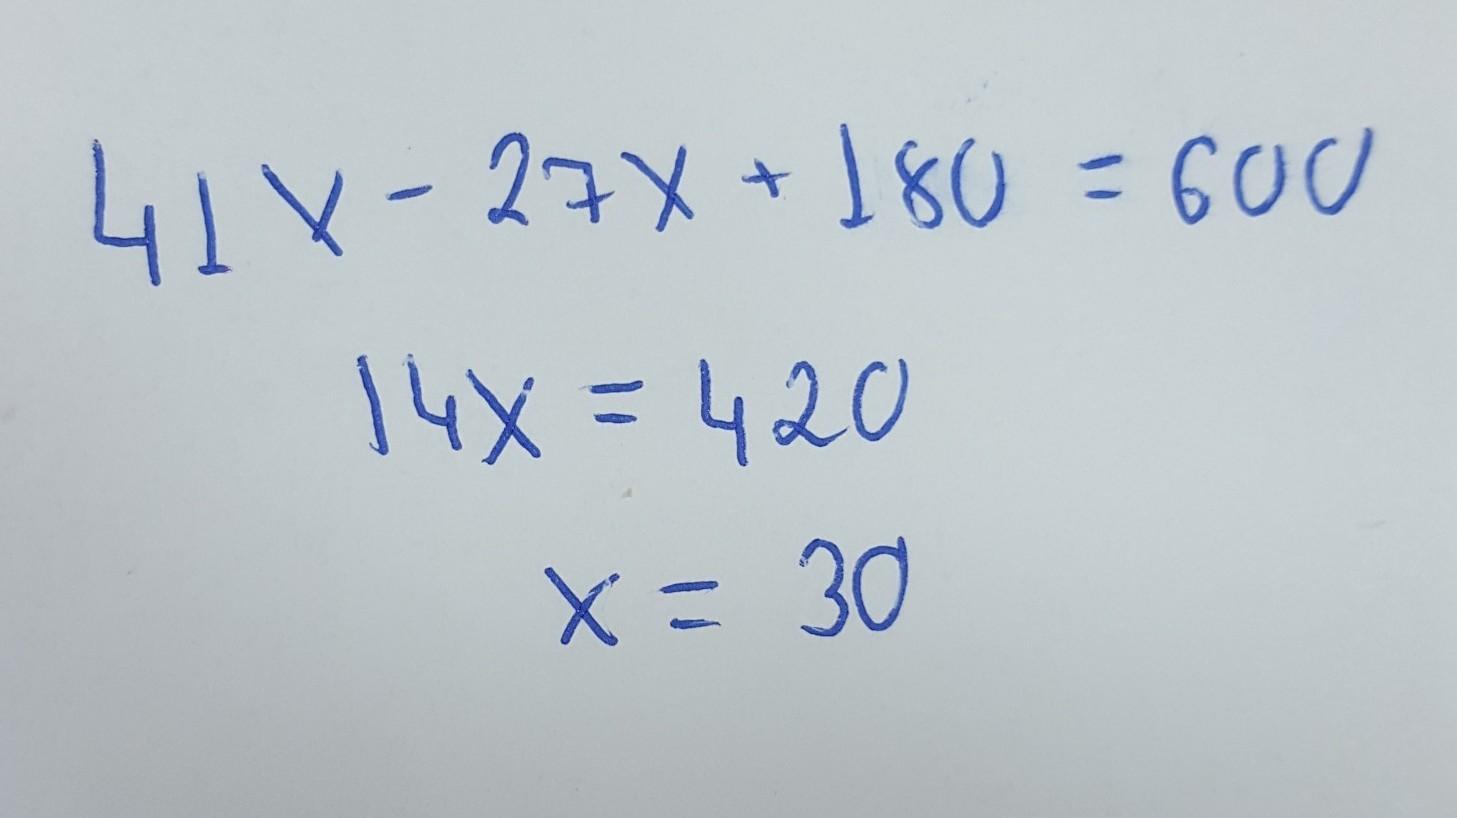 41x - 27x + 180 = 600
14x = 420
x = 30